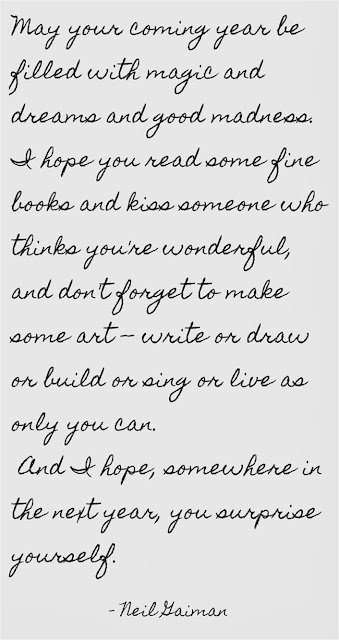 May your coming year be
filled with magic and
dreams and good madness.
I hope you read some fine
books and kiss someone who
thinks you're wonderful,
and don't forget to make
some art -- write or draw
or build or sing or live as
only you can.
And I hope, somewhere in
the next year, you surprise
yourself.
-Neil Gaiman